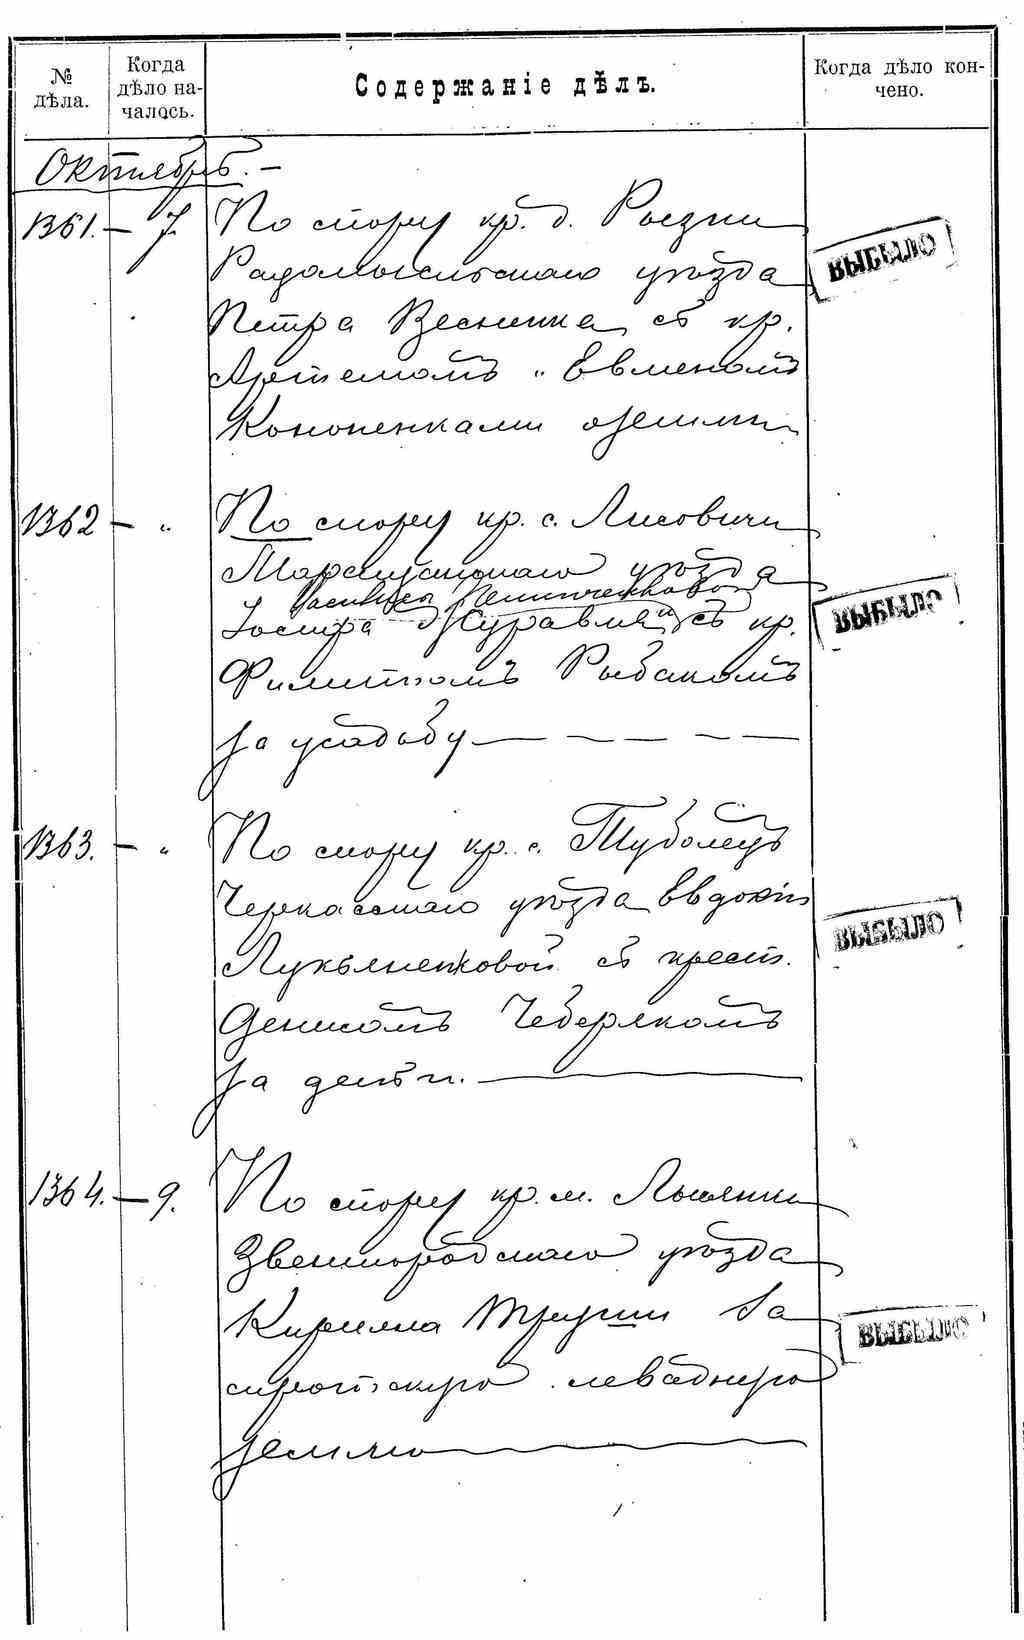 № дѣла.
Когда дѣло на-
чалось.
Содержаніе дѣлъ.
Когда дѣло кон-
чено.
Октябрь. –
1361. – 7.
По спору кр. д. Рызни
Радомысльскаго уѣзда
Петра Весненка съ кр.
Артемомъ и Евменомъ
Кононенками о земли
ВЫБЫЛО
1362 – "
По спору кр. с. Лисовичи
Таращанскаго уѣзда
Василисы
Іосифа Журавля и съ кр.
Филиппомъ Рыбакомъ
за усадьбу
ВЫБЫЛО
1363. – "
По спору кр. с. Тубольцъ
Черкасскаго уѣзда Евдокіи
Лукьяненковой съ крест.
Денисомъ Чеберякомъ
за
ВЫБЫЛО
1364. – 9.
По спору кр. м. Лысянки
Звенигородскаго уѣзда
Кирилла за
сиротскую левадную
землю
ВЫБЫЛО